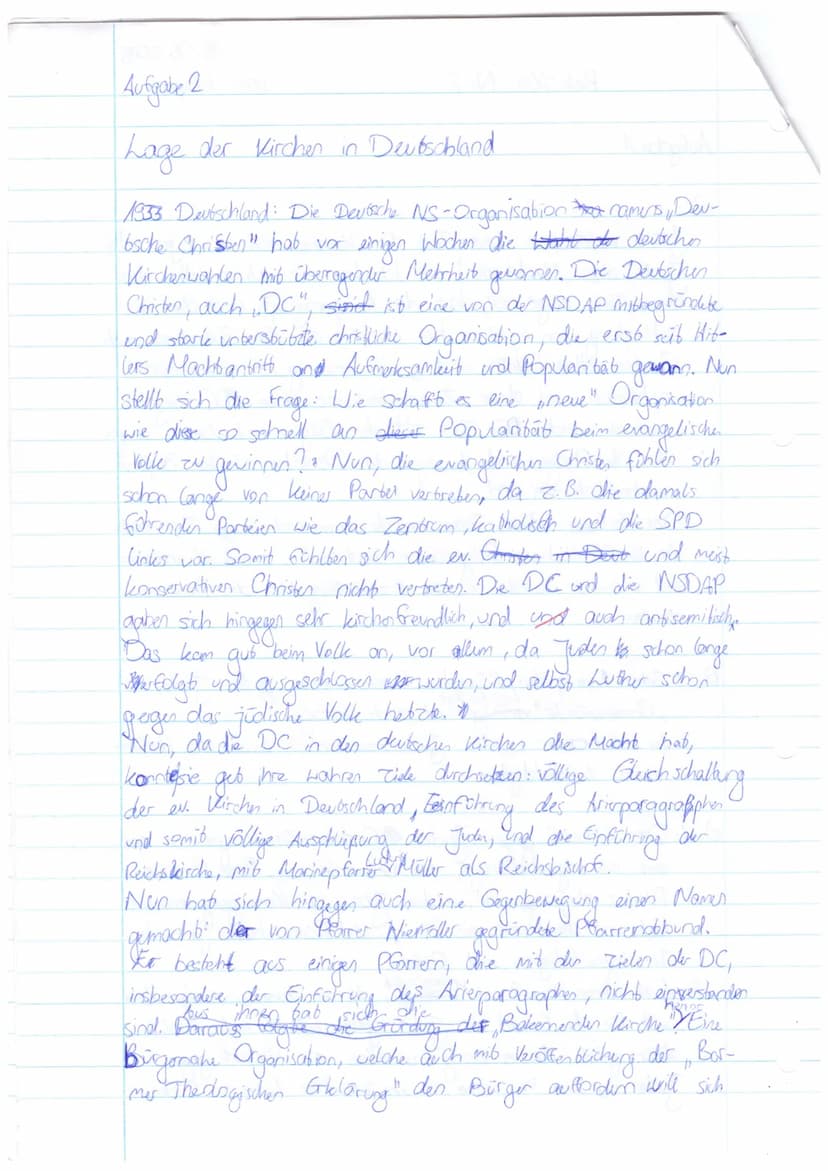 Aufgabe 2
Lage der Kirchen in Deutschland
1933 Deutschland: Die Deutsche NS-Organisation namens „Deu-
tsche Christen" hat vor einigen Wochen die deutschen
Kirchenwahlen mit überragender Mehrheit gewonnen. Die Deutschen
Christen, auch „DC", sind ist eine von der NSDAP mitbegründete
und stark unterstützte christliche Organisation, die erst seit Hit-
lers Machtantritt and Aufmerksamkeit und Popularität gewann. Nun
stellt sich die Frage: Wie schafft es eine „neue" Organisation
wie diese so schnell an dieser Popularität beim evangelischen
Volke zu gewinnen? Nun, die evangelischen Christen fühlen sich
schon lange von keiner Partei vertreten, da z.B. die damals
führenden Parteien wie das Zentrum, katholisch und die SPD
links war. Somit fühlten sich die ev. Christen in Deut und meist
konservativen Christen nicht vertreten. Die DC und die NSDAP
gaben sich hingegen sehr kirchenfreundlich, und und auch antisemitisch.
Das kam gut beim Volk an, vor allem, da Juden schon lange
verfolgt und ausgeschlossen wurden, und selbst Luther schon
gegen das jüdische Volk hetzte. *
Nun, da die DC in den deutschen Kirchen die Macht hat,
konnte sie gut ihre wahren Ziele durchsetzen: völlige Gleichschaltung
der ev. Kirchen in Deutschland, Einführung des Arierparagraphen
und somit völlige Ausschließung der Juden, und die Einführung der
Reichskirche, mit Marinepfarrer Ludwig Müller als Reichsbischof.
Nun hat sich hingegen auch eine Gegenbewegung einen Namen
gemacht: der von Pfarrer Niemöller gegründete Pfarrernotbund.
Er besteht aus einigen Pfarrern, die mit den Zielen der DC,
insbesondere der Einführung des Arierparagraphen, nicht einverstanden
Aus ihnen hat sich die
sind. Daraus folgte die Gründung der „Bekennenden Kirche" Eine
Bürgernahe Organisation, welche auch mit Veröffentlichung der „Bar-
mer Theologischen Erklärung" den Bürger auffordern will sich